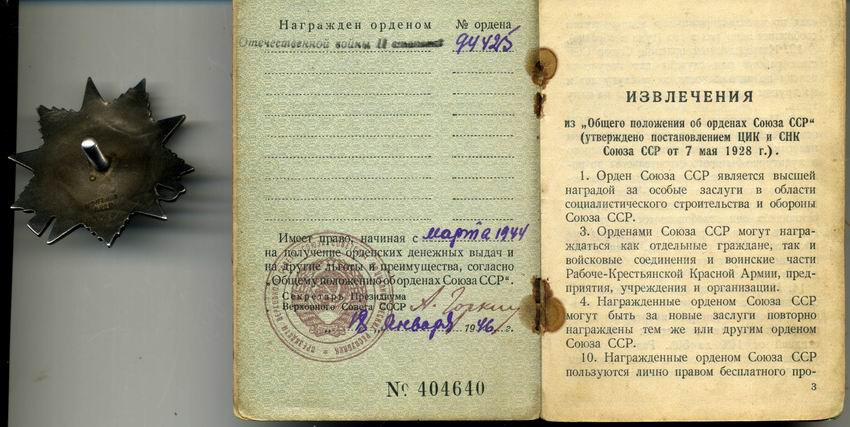 Награжден орденом № ордена
Отечественной войны II степени 94425
Имеет право, начиная с марта 1944
на получение орденских денежных выдач и
на другие льготы и преимущества, согласно
„Общему положению об орденах Союза ССР“.
Секретарь Президиума
Верховного Совета СССР А. Горкин
„18“ января 1946 г.
№ 404640
ИЗВЛЕЧЕНИЯ
из „Общего положения об орденах Союза ССР“
(утверждено постановлением ЦИК и СНК
Союза ССР от 7 мая 1928 г.).
1. Орден Союза ССР является высшей
наградой за особые заслуги в области
социалистического строительства и обороны
Союза ССР.
3. Орденами Союза ССР могут награ-
ждаться как отдельные граждане, так и
войсковые соединения и воинские части
Рабоче-Крестьянской Красной Армии, пред-
приятия, учреждения и организации.
4. Награжденные орденом Союза ССР
могут быть за новые заслуги повторно
награждены тем же или другим орденом
Союза ССР.
10. Награжденные орденом Союза ССР
пользуются лично правом бесплатного про-
3